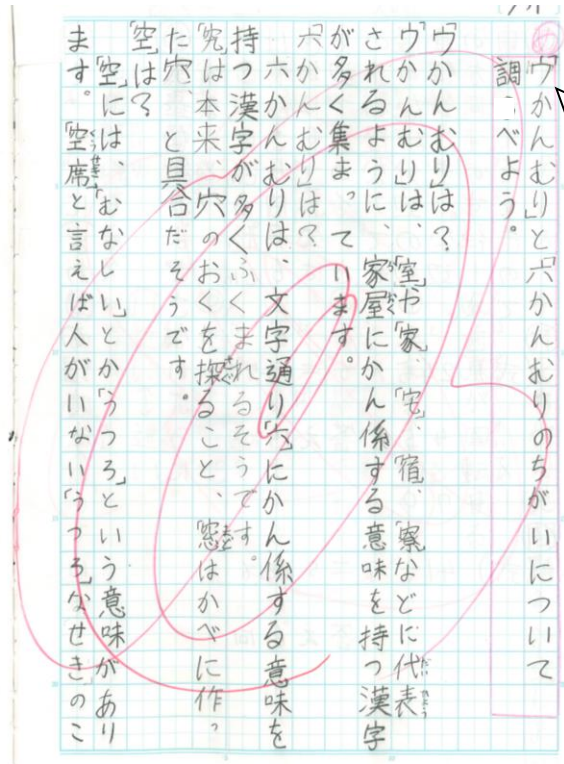 め
「ウかんむり」と「穴かんむりのちがいについて
調べよう。
「ウかんむり」は?
「ウかんむり」は、「室」や「家」、「宅」、「宿」、「寮」などに代表
されるように、家屋にかん係する意味を持つ漢字
が多く集まっています。
「穴かんむり」は?
穴かんむりは、文字通り「穴」にかん係する意味を
持つ漢字が多くふくまれるそうです。
「究」は本来、穴のおくを探ること、「窓」はかべに作っ
た穴、と具合だそうです。
「空」は?
「空」には、「むなしい」とか「うつろ」という意味があり
ます。「空席」と言えば人がいない「うつろ」なせき」のこ